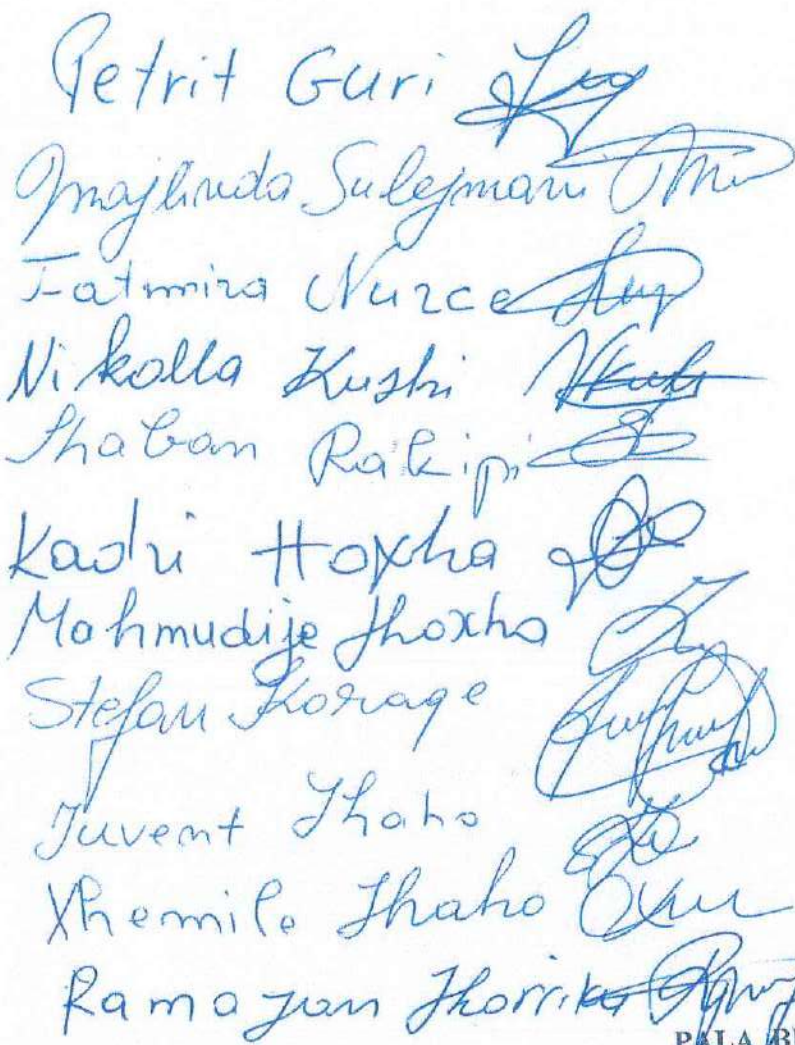 Petrit Guri
Majlinda Sulejmani
Fatmira Nurce
Nikolla Kushi
Shaban Rakipi
Kadri Hoxha
Mahmudije Hoxha
Stefan Korage
Juvent Xhaho
Xhemile Xhaho
Ramazan
PALA